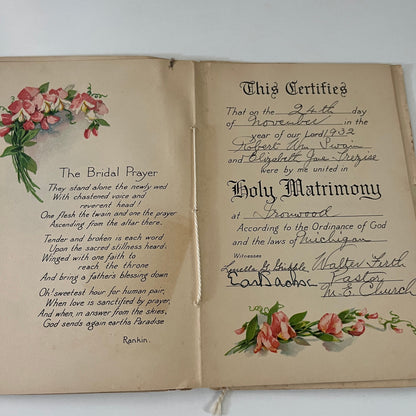 The Bridal Prayer
They stand alone the newly wed
With chastened voice and
reverent head!
One flesh the twain and one the prayer
Ascending from the altar there.
Tender and broken is each word
Upon the sacred stillness heard.
Winged with one faith to
reach the throne
And bring a fathers blessing down
Oh! sweetest hour for human pair,
When love is sanctified by prayer,
And when, in answer from the skies,
God sends again earths Paradise
Rankin.
This Certifies
That on the 24th day
of November in the
year of our Lord 1932
Robert Swain
and Elizabeth Jane Trezise
were by me united in
Holy Matrimony
at Ironwood
According to the Ordinance of God
and the laws of Michigan
Witnesses
Walter Firth
Pastor
M. E. Church